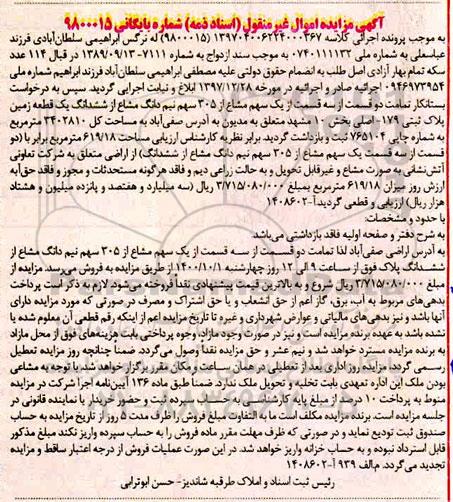 آگهی مزایده اموال غیر منقول (اسناد ذمه) شماره بایگانی ۹۸۰۰۰۱۵
به موجب پرونده اجرائی کلاسه ۱۳۹۷۰۴۰۰۶۲۲۴۰۰۰۳۶۷ (۹۸۰۰۰۱۵) له نرگس ابراهیمی سلطان‌آبادی فرزند
عباسعلی به شماره ملی ۰۷۴۰۱۱۱۱۳۲ به موجب سند ازدواج به شماره ۷۱۱۱-۱۳۸۹/۰۹/۱۳ در قبال ۱۱۴ عدد
سکه تمام بهار آزادی اصل طلب به انضمام حقوق دولتی علیه مصطفی ابراهیمی سلطان آباد فرزند ابراهیم شماره ملی
۰۹۴۶۹۷۳۹۵۴ اجرائیه صادر و اجرائیه در مورخه ۱۳۹۷/۱۱/۲۸ ابلاغ و نیابت اجرایی گردید. سپس به درخواست
بستانکار تمامت دو قسمت از سه قسمت از یک سهم مشاع از ۳۰۵ سهم نیم دانگ مشاع از ششدانگ یک قطعه زمین
پلاک ثبتی ۱۷۹- اصلی بخش ۱۰ مشهد متعلق به مدیون به آدرس صفی‌آباد به مساحت کل ۳۴۰۲۸۱۰ مترمربع
به شماره چاپی ۷۶۵۱۰۴ ثبت و بازداشت گردید. برابر نظریه کارشناس ارزیابی مساحت ۶۱۹/۱۸ مترمربع برابر با (دو
قسمت از سه قسمت یک سهم مشاع از ۳۰۵ سهم نیم دانگ مشاع از ششدانگ) از اراضی متعلق به شرکت تعاونی
آتش‌نشانی به صورت مشاع و غیرقابل تحویل و به حالت زراعی دیم و فاقد هرگونه مستحدثات و مجوز و فاقد حق‌آبه
ارزش روز میزان ۶۱۹/۱۸ مترمربع بمبلغ ۳/۷۱۵/۰۸۰/۰۰۰ ریال (سه میلیارد و هفتصد و پانزده میلیون و هشتاد
هزار ریال) ارزیابی و قطعی گردید.آ-۱۴۰۸۶۰۲
با حدود و مشخصات:
به شرح دفتر و صفحه اولیه فاقد بازداشتی می‌باشد
به آدرس اراضی صفی‌آباد لذا تمامت دو قسمت از سه قسمت از یک سهم مشاع از ۳۰۵ سهم نیم دانگ مشاع از
ششدانگ پلاک فوق از ساعت ۹ الی ۱۲ روز چهارشنبه ۱۴۰۰/۱۰/۱ از طریق مزایده به فروش می‌رسد. مزایده از
مبلغ ۳/۷۱۵/۰۸۰/۰۰۰ ریال شروع و به بالاترین قیمت پیشنهادی نقداً فروخته می‌شود. لازم به ذکر است پرداخت
بدهی‌های مربوط به آب، برق، گاز اعم از حق انشعاب و یا حق اشتراک و مصرف در صورتی که مورد مزایده دارای
آنها باشد و نیز بدهی‌های مالیاتی و عوارض شهرداری و غیره تا تاریخ مزایده اعم از اینکه رقم قطعی آن معلوم شده یا
نشده باشد به عهده برنده مزایده است و نیز در صورت وجود مازاد، وجوه پرداختی بابت هزینه‌های فوق از محل مازاد
به برنده مزایده مسترد خواهد شد و نیم عشر و حق مزایده نقداً وصول می‌گردد. ضمناً چنانچه روز مزایده تعطیل
رسمی گردد، مزایده روز اداری بعد از تعطیلی در همان ساعت و مکان مقرر برگزار خواهد شد. با توجه به مشاعی
بودن ملک این اداره تعهدی بابت تخلیه و تحویل ملک ندارد. ضمناً طبق ماده ۱۳۶ آیین‌نامه اجرا شرکت در مزایده
منوط به پرداخت ۱۰ درصد از مبلغ پایه کارشناسی به حساب سپرده ثبت و حضور خریدار یا نماینده قانونی در
جلسه مزایده است. برنده مزایده مکلف است ما به التفاوت مبلغ فروش را ظرف مدت ۵ روز از تاریخ مزایده به حساب
صندوق ثبت تودیع نماید و در صورتی که ظرف مهلت مقرر مانده فروش را به حساب سپرده واریز نکند مبلغ مذکور
قابل استرداد نبوده و به حساب خزانه واریز خواهد شد. در این صورت عملیات فروش از درجه اعتبار ساقط و مزایده
تجدید می‌گردد. م.الف ۹۳۹ آ-۱۴۰۸۶۰۲
رئیس ثبت اسناد و املاک طرقبه شاندیز- حسن ابوترابی